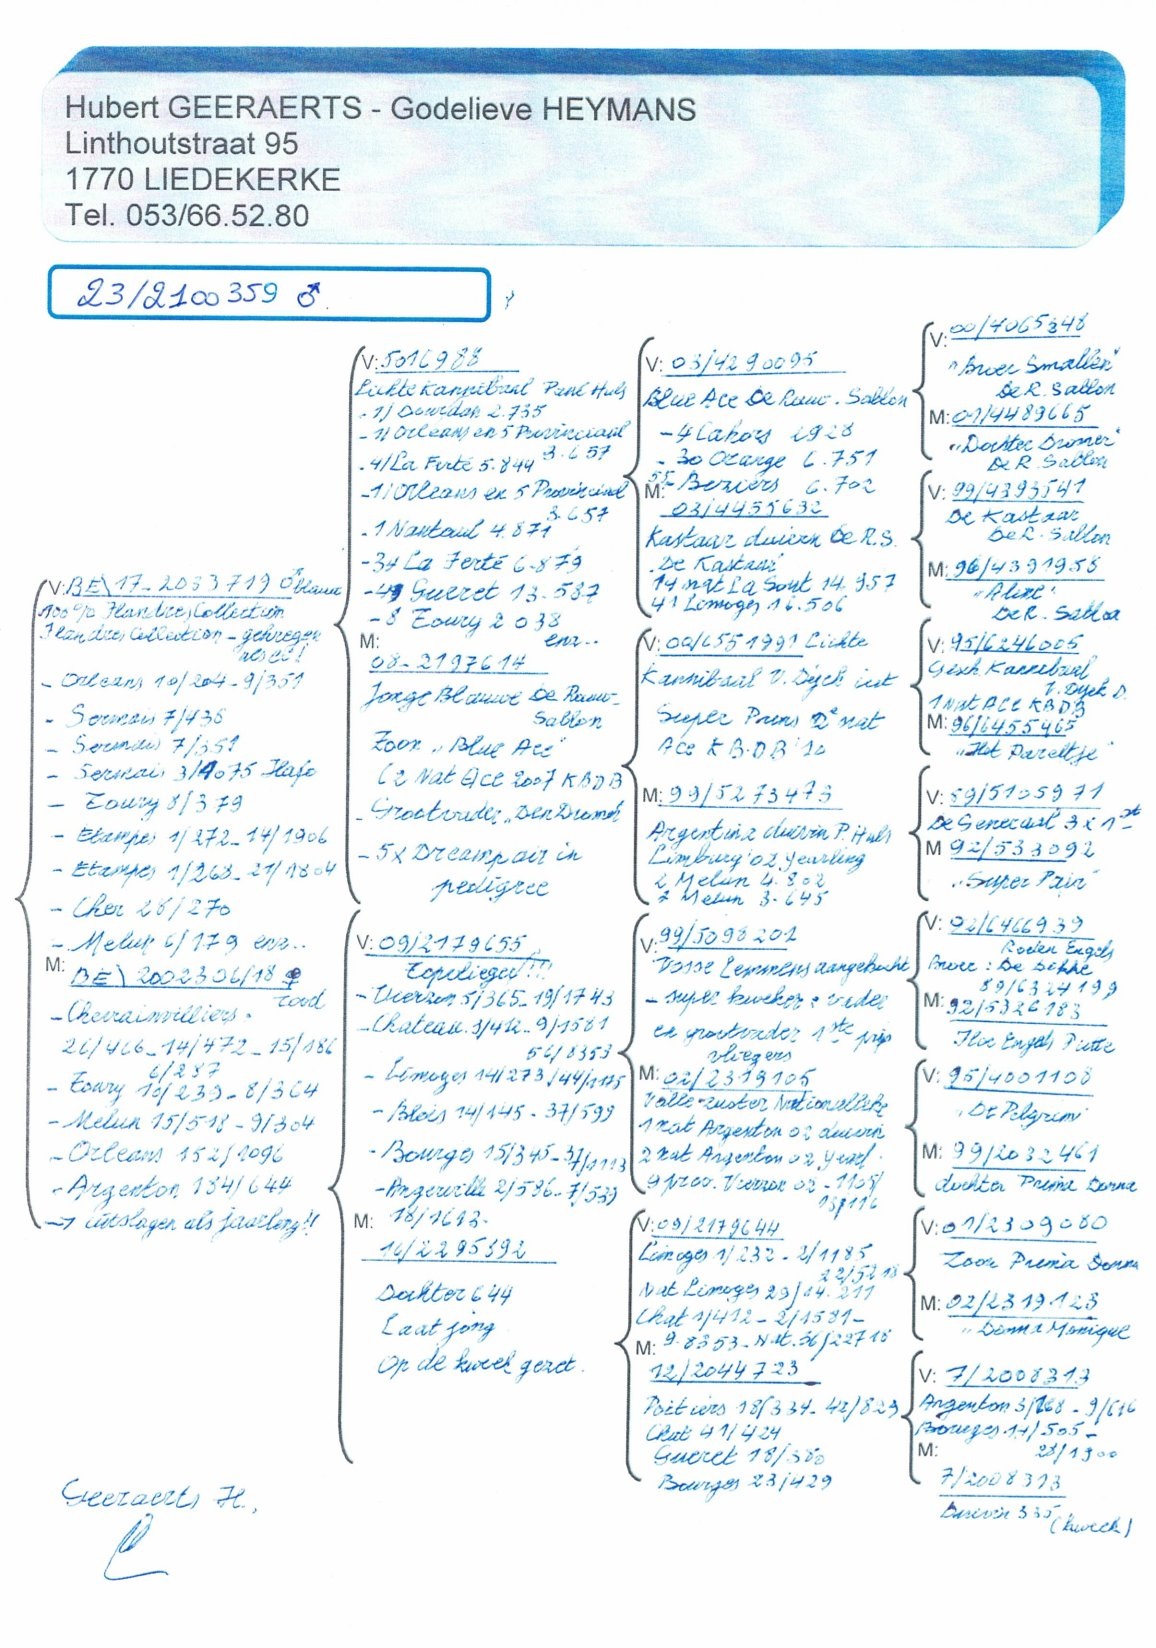 Hubert GEERAERTS - Godelieve HEYMANS
Linthoutstraat 95
1770 LIEDEKERKE
Tel. 053/66.52.80
23/2100359 ♂
V: BE\17-2083719 ♂ blauw
100% Flandres Collection
Flandres Collection - gekregen
als ei!
- Orleans 10/204 - 9/351
- Sermais 7/438
- Sermais 7/351
- Sermais 3/1075 Hafo
- Toury 8/379
- Etampes 1/272 - 14/1906
- Etampes 1/268 - 21/1804
- Cher 28/270
- Melun 6/179 enz..
M: BE\2002306/18 ♀
rood
- Chevrainvilliers -
26/466 - 14/472 - 15/186
6/287
- Toury 10/239 - 8/364
- Melun 15/518 - 9/304
- Orleans 152/1096
- Argenton 184/644
→ uitslagen als jaarling!!
Geeraerts H.,
V: 5016988
Lichte Kannibaal Paul Huls
- 1/ Dourdan 2.735
- 1/ Orleans en 5 Provinciaal
3.657
- 4/ La Ferté 5.844
- 1/ Orleans en 5 Provinciaal
3.657
- 1 Nanteuil 4.871
- 34 La Ferté 6.879
- 49 Gueret 13.587
- 8 Toury 2038
enz..
M:
08-2197614
Jonge Blauwe De Rauw-
Sablon
Zoon "Blue Ace"
(2 Nat Ace 2007 KBDB
- Grootvader "Den Dromer
- 5x Dreampair in
pedigree
V: 09/2179655
Topvlieger!!!
- Vierzon 5/365 - 19/1743
- Chateau. 3/412 - 9/1581
56/8353
- Limoges 14/273/44/1175
- Blois 14/145 - 37/599
- Bourges 15/345 - 37/1113
- Angerville 2/586 - 7/539
M: 18/1613.
16/2295392
Dochter 644
Laat jong
Op de kweek gezet.
V: 03/4290095
Blue Ace De Rauw-Sablon
- 4 Cahors 1928
- 30 Orange 6.751
55 Beziers 6.702
M:
03/4455632
Kastaar duivin De R.S.
"De Kastaar"
14 nat La Sout 14.957
41 Limoges 16.506
V: 00/6551991 Lichte
Kannibaal V. Dyck uit
Super Prins 2e nat
Ace KBDB '10
M: 99/5273473
Argentina duivin P. Huls
Limburg '02 Yearling
2 Melun 4.802
7 Melun 3.645
V: 99/5098201
Vosse Lemmens aangekocht
- super kweker : vader
en grootvader 1ste prijs
vliegers
M: 02/2319105
Volle zuster Nationalleke
1 nat Argenton 02 duivin
2 nat Argenton 02 Yearl.
9 prov. Vierzon 02 - 1105/
13/116
V: 09/2179644
Limoges 1/232 - 2/1185
22/5218
Nat Limoges 29/04.211
Chat 1/412 - 2/1581 -
M: 9.8353 - Nat. 36/22718
12/2044723
Poitiers 18/334 - 42/823
Chat 41/424
Gueret 18/380
Bourges 23/429
V: 00/4065348
"Broer Smallen"
De R. Sablon
M: 01/4489665
"Dochter Dromer"
De R. Sablon
V: 99/4393541
De Kastaar
De R. Sablon
M: 96/4391958
"Aline"
De R. Sablon
V: 95/6246005
Gesch Kannibaal
V. Dyck D.
1 Nat Ace KBDB
M: 96/6455465
"Het Pareltje"
V: 89/5105971
De Generaal 3 x 1st
M 92/533092
"Super Pair"
V: 02/6466939
Roden Engels
Broer : De Dikke
89/6324199
M: 92/5326183
Engels Putte
V: 95/4001108
"De Pelgrim"
M: 99/2032461
dochter Prima Donna
V: 01/2309080
Zoon Prima Donna
M: 02/2319123
"Donna Monique
V: 7/2008313
Argenton 3/168 - 9/616
Bourges 14/505 -
M: 28/1900
7/2008313
Duivin 335
(kweek)